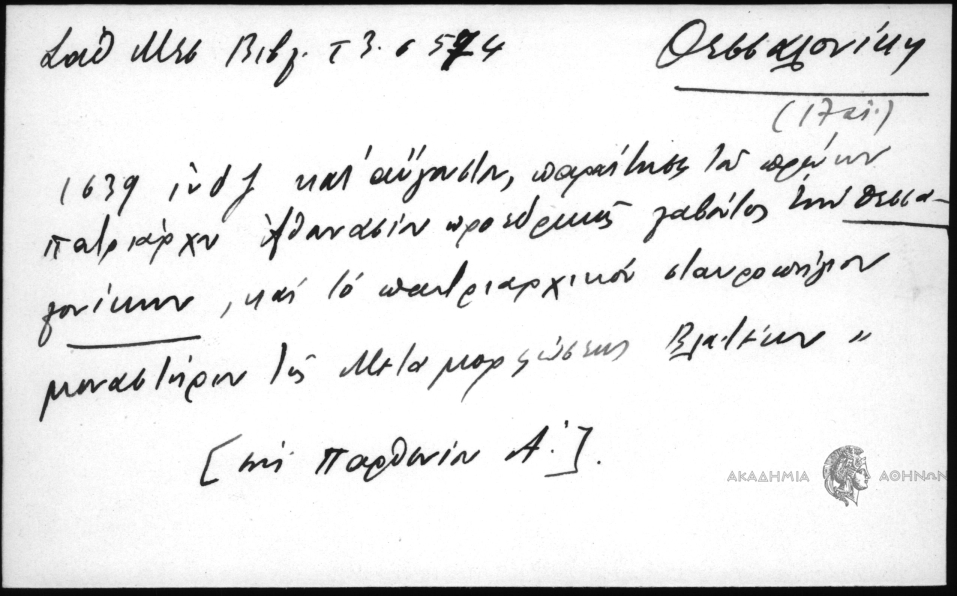 Σαθ Μεσ Βιβλ. τ 3. σ 574
Θεσσαλονίκη
(17 αἰ.)
1639 ἰνδ ζ κατ' αὔγουστον, παραίτησις τοῦ πρώην
πατριάρχου Ἀθανασίου προεδρικῶς λαβόντος τὴν Θεσσα-
λονίκην, καὶ τὸ πατριαρχικόν σταυροπήγιον
μοναστήριον τῆς Μεταμορφώσεως Βλατέων "
[ἐπὶ Παρθενίου Α'].
ΑΚΑΔΗΜΙΑ ΑΘΗΝΩΝ